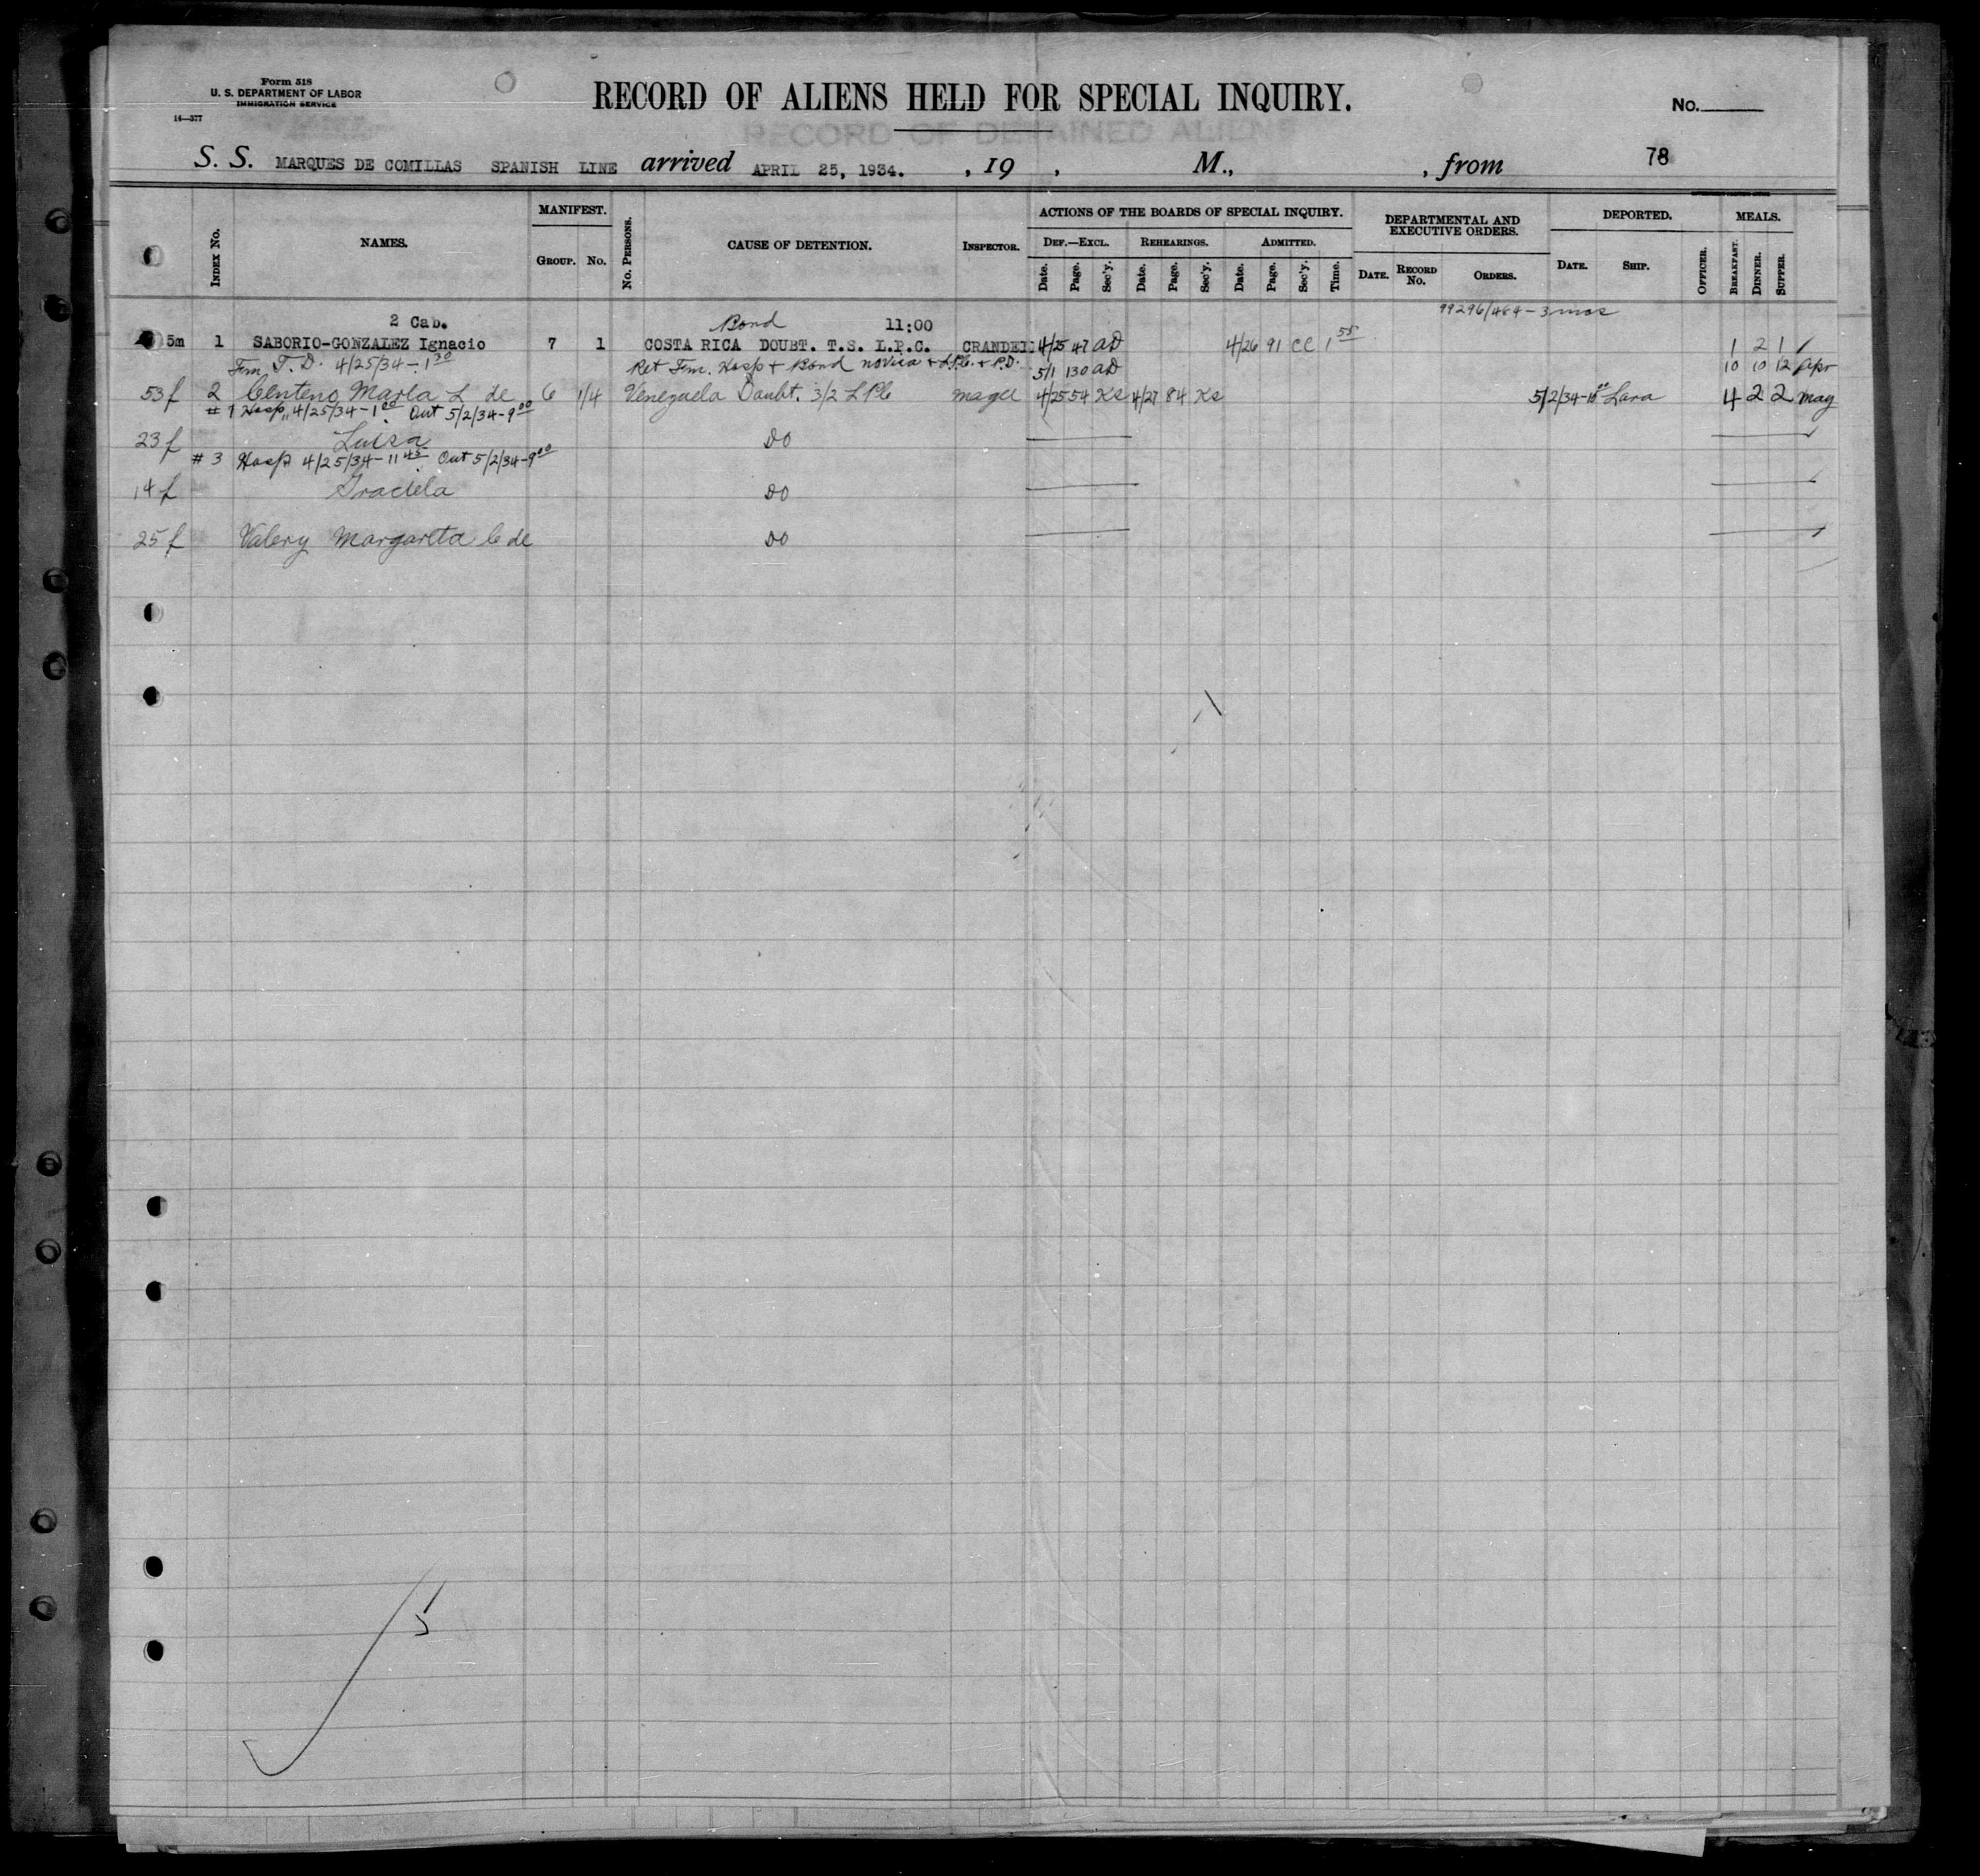 Form 518
U. S. DEPARTMENT OF LABOR
IMMIGRATION SERVICE
14—577
RECORD OF ALIENS HELD FOR SPECIAL INQUIRY.
No.
RECORD OF DETAINED ALIENS
S. S. MARQUES DE COMILLAS SPANISH LINE arrived APRIL 25, 1934. , 19 , M., , from
78
INDEX No. NAMES. MANIFEST. GROUP. No. No. PERSONS. CAUSE OF DETENTION. INSPECTOR.
ACTIONS OF THE BOARDS OF SPECIAL INQUIRY.
DEF.—EXCL. REHEARINGS. ADMITTED.
Date. Page. Sec'y. Date. Page. Sec'y. Date. Page. Sec'y. Time.
DEPARTMENTAL AND EXECUTIVE ORDERS.
DATE. RECORD No. ORDERS.
DEPORTED.
DATE. SHIP. OFFICER.
MEALS.
BREAKFAST. DINNER. SUPPER.
99296/464 - 3 mos
2 Cab. Bond 11:00
5m 1 SABORIO-GONZALEZ Ignacio 7 1 COSTA RICA DOUBT. T.S. L.P.C. CRANDELL 4/25 47 AD 4/26 91 CC 1 55 1 2 1
Frm T.D. 4/25/34 - 1 30 Ret Frm. Hosp + Bond no Visa + L.P.C. + P.D. 5/1 130 AD 10 10 12 Apr
53 f 2 Centeno Marla L de 6 1/4 Venezuela Doubt. 3/2 LPC Magee 4/25 54 Ks 4/27 84 Ks 5/2/34 - 10 00 Lara 4 2 2 May
#1 Hosp 4/25/34 - 1 00 Out 5/2/34 - 9 00
23 f Luisa DO
#3 Hosp 4/25/34 - 11 45 Out 5/2/34 - 9 00
14 f Graciela DO
25 f Valery Margarita C de DO
5